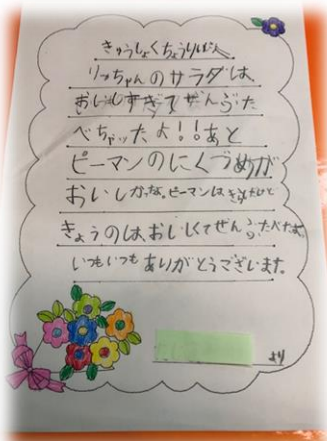 きゅうしょくちょうりばへ
りっちゃんのサラダは、
おいしすぎてぜんぶた
べちゃッたよ!!あと
ピーマンのにくづめが
おいしかったな。ピーマンは だけど
きょうのは、おいしくてぜんぶたべたよ。
いつもいつもありがとうございます。
より